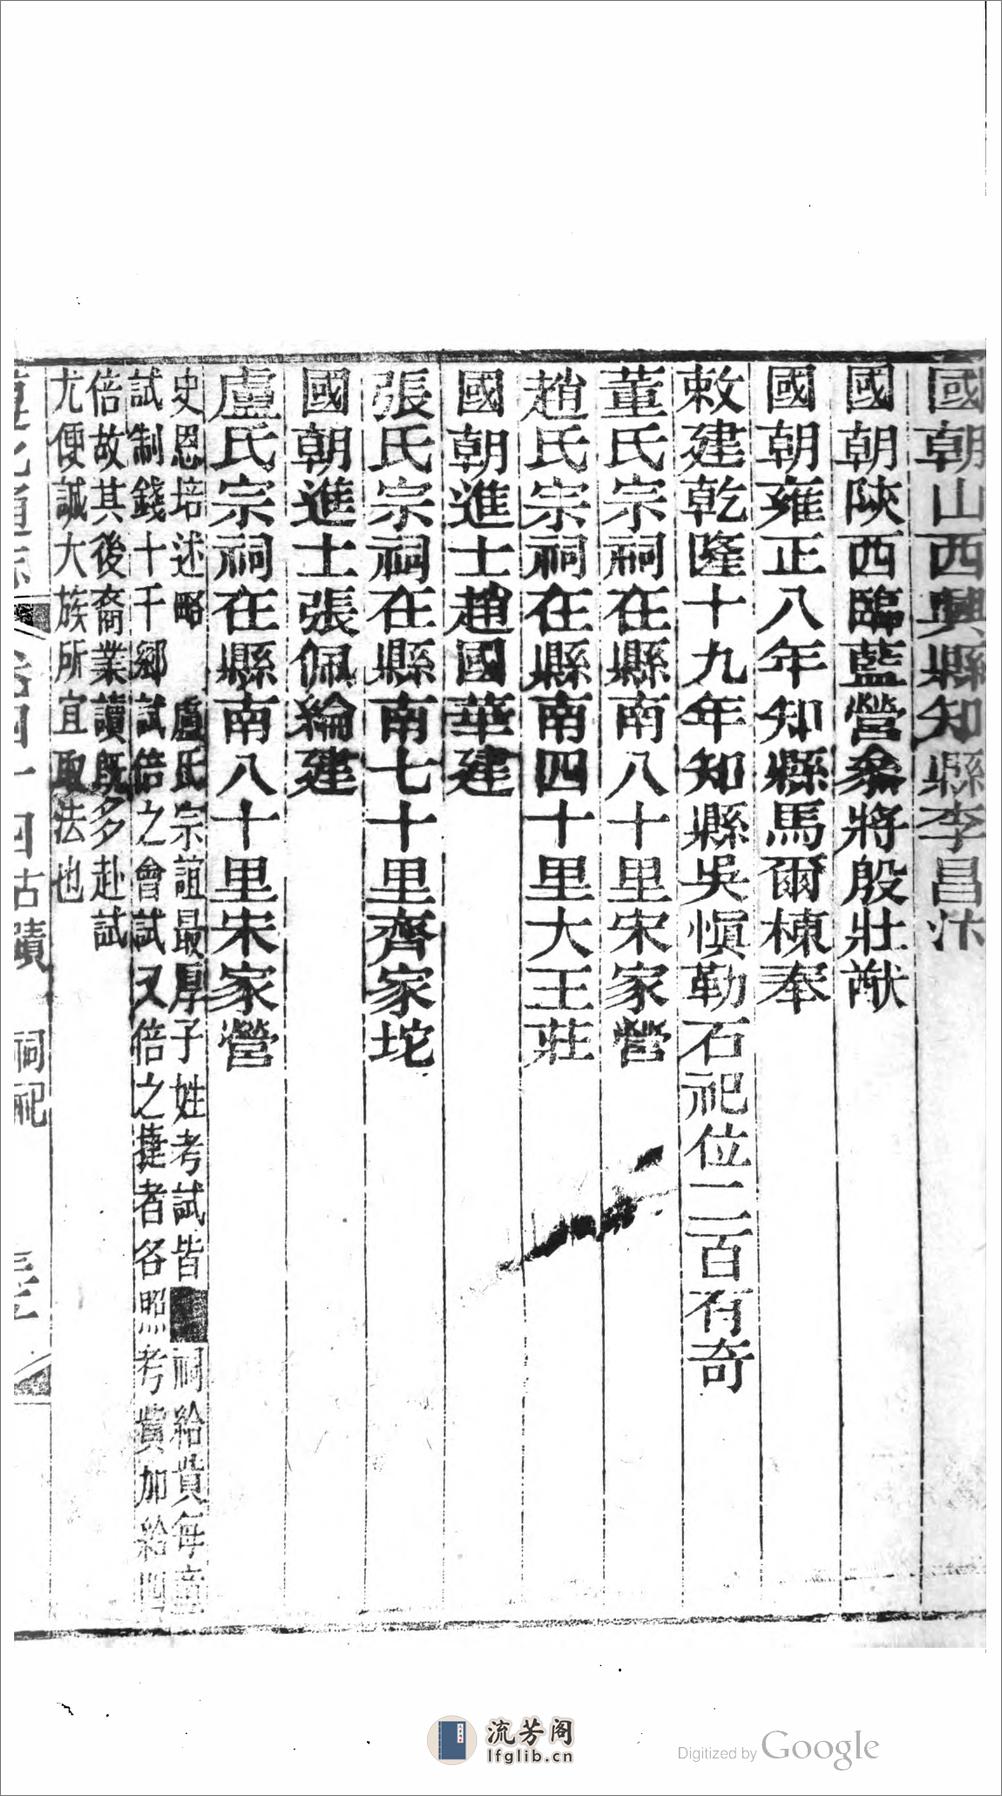 國朝山西興縣知縣李昌沐
國朝陝西臨藍營叅將殷壯猷
國朝雍正八年知縣馬爾棟奉
敕建乾隆十九年知縣吳愼勒石祀位二百有奇
董氏宗祠在縣南八十里宋家營
趙氏宗祠在縣南四十里大王莊
國朝進士趙國華建
張氏宗祠在縣南七十里齊家坨
國朝進士張佩綸建
盧氏宗祠在縣南八十里宋家營
史恩培述略 盧氏宗誼最厚子姓考試皆祠給貲每
試制錢十千鄉試倍之會試又倍之捷者各照考貲加給四
倍故其後裔業讀旣多赴試
尤便誠大族所宜取法也
遵化通志 卷四十四古蹟 祠祀
流芳阁
lfglib.cn
Digitized by Google